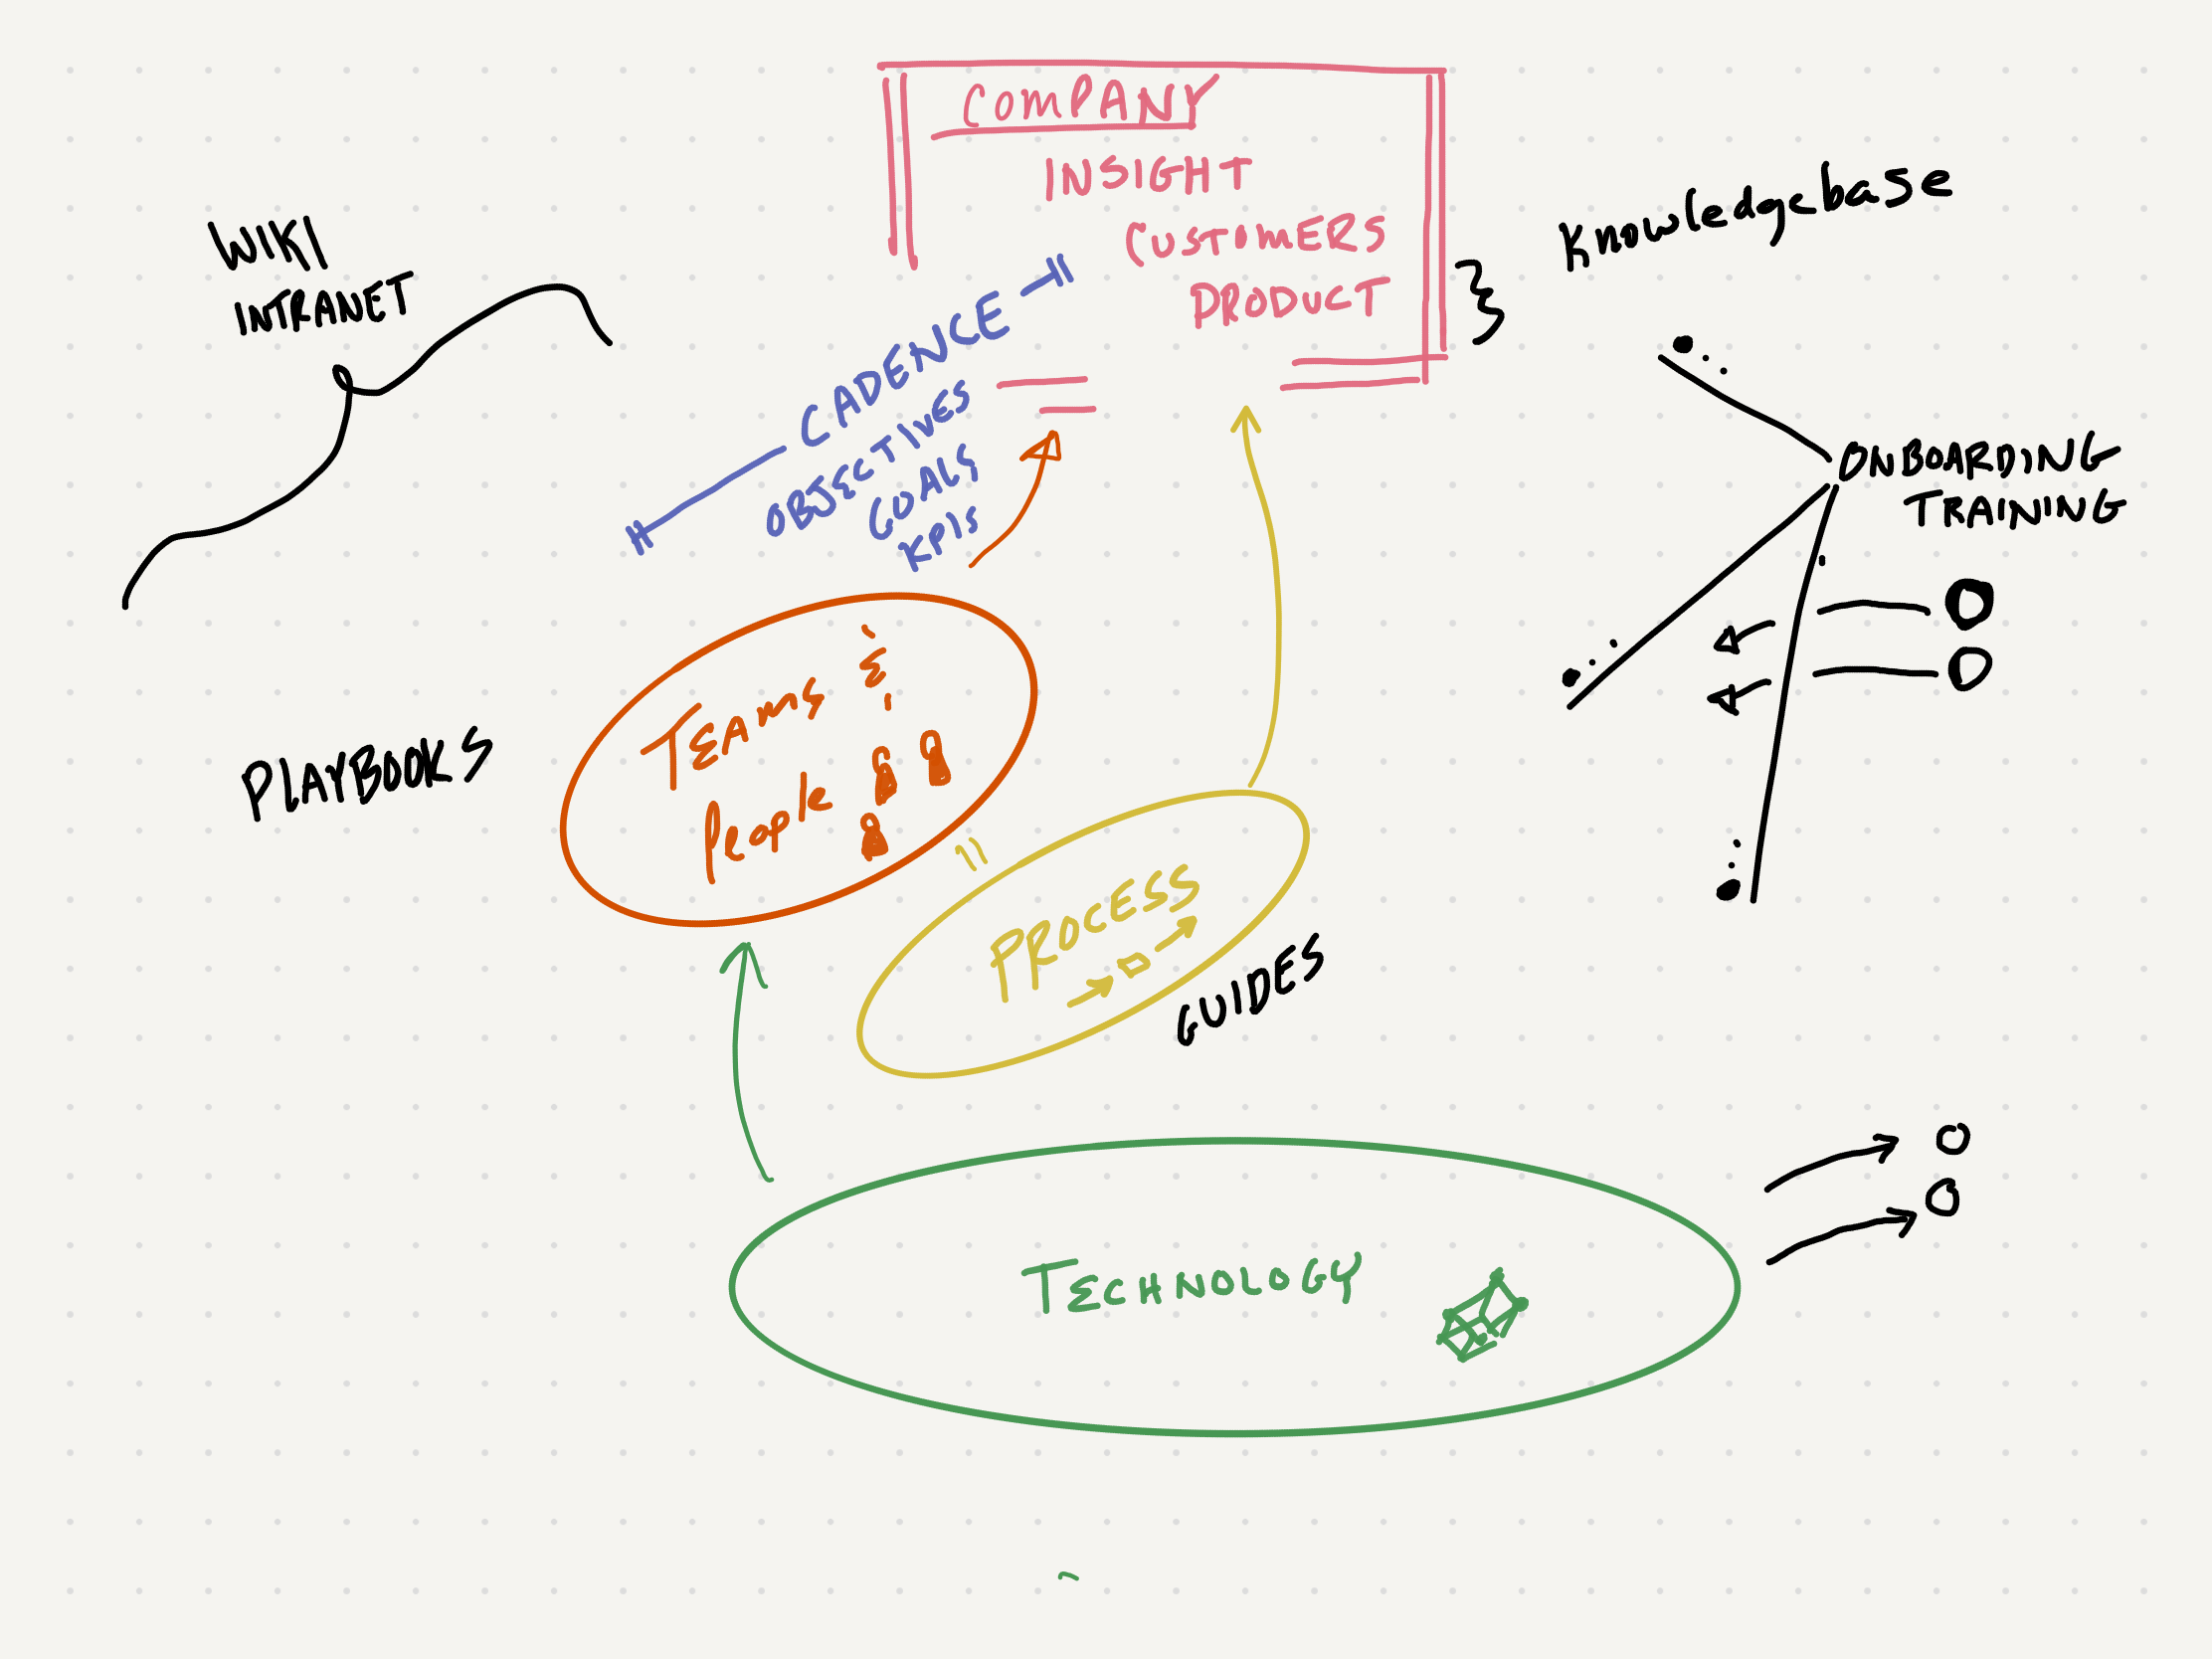 COMPANY
INSIGHT
CUSTOMERS
PRODUCT
Knowledgebase
WIKI
INTRANET
CADENCE
OBJECTIVES
GOALS
KPIS
ONBOARDING
TRAINING
TEAMS &
People
PLAYBOOKS
PROCESS
GUIDES
TECHNOLOGY